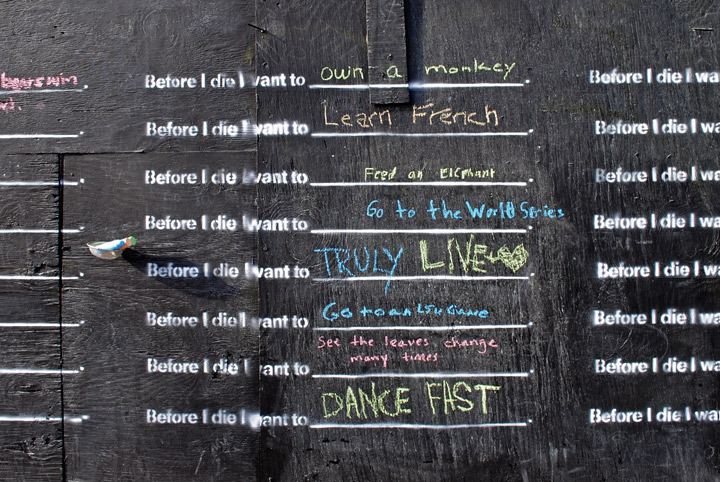 Before I die I want to own a monkey.
Before I die I want to Learn French.
Before I die I want to Feed an Elephant.
Before I die I want to Go to the World Series
Before I die I want to TRULY LIVE.
Before I die I want to Go to an LSU Game.
Before I die I want to See the leaves change
many times.
Before I die I want to DANCE FAST.
Before I die I wa
Before I die I wa
Before I die I wa
Before I die I wa
Before I die I wa
Before I die I wa
Before I die I wa
Before I die I wa